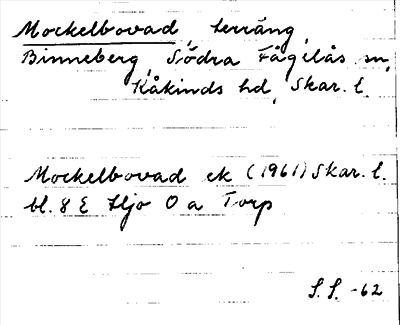 Mockelbovad, terräng,
Binneberg, Södra Fågelås sn,
Kåkinds hd, Skar. l.
Mockelbovad ek (1961) Skar. l.
bl. 8 E Hjo O a Torp
S.S. -62